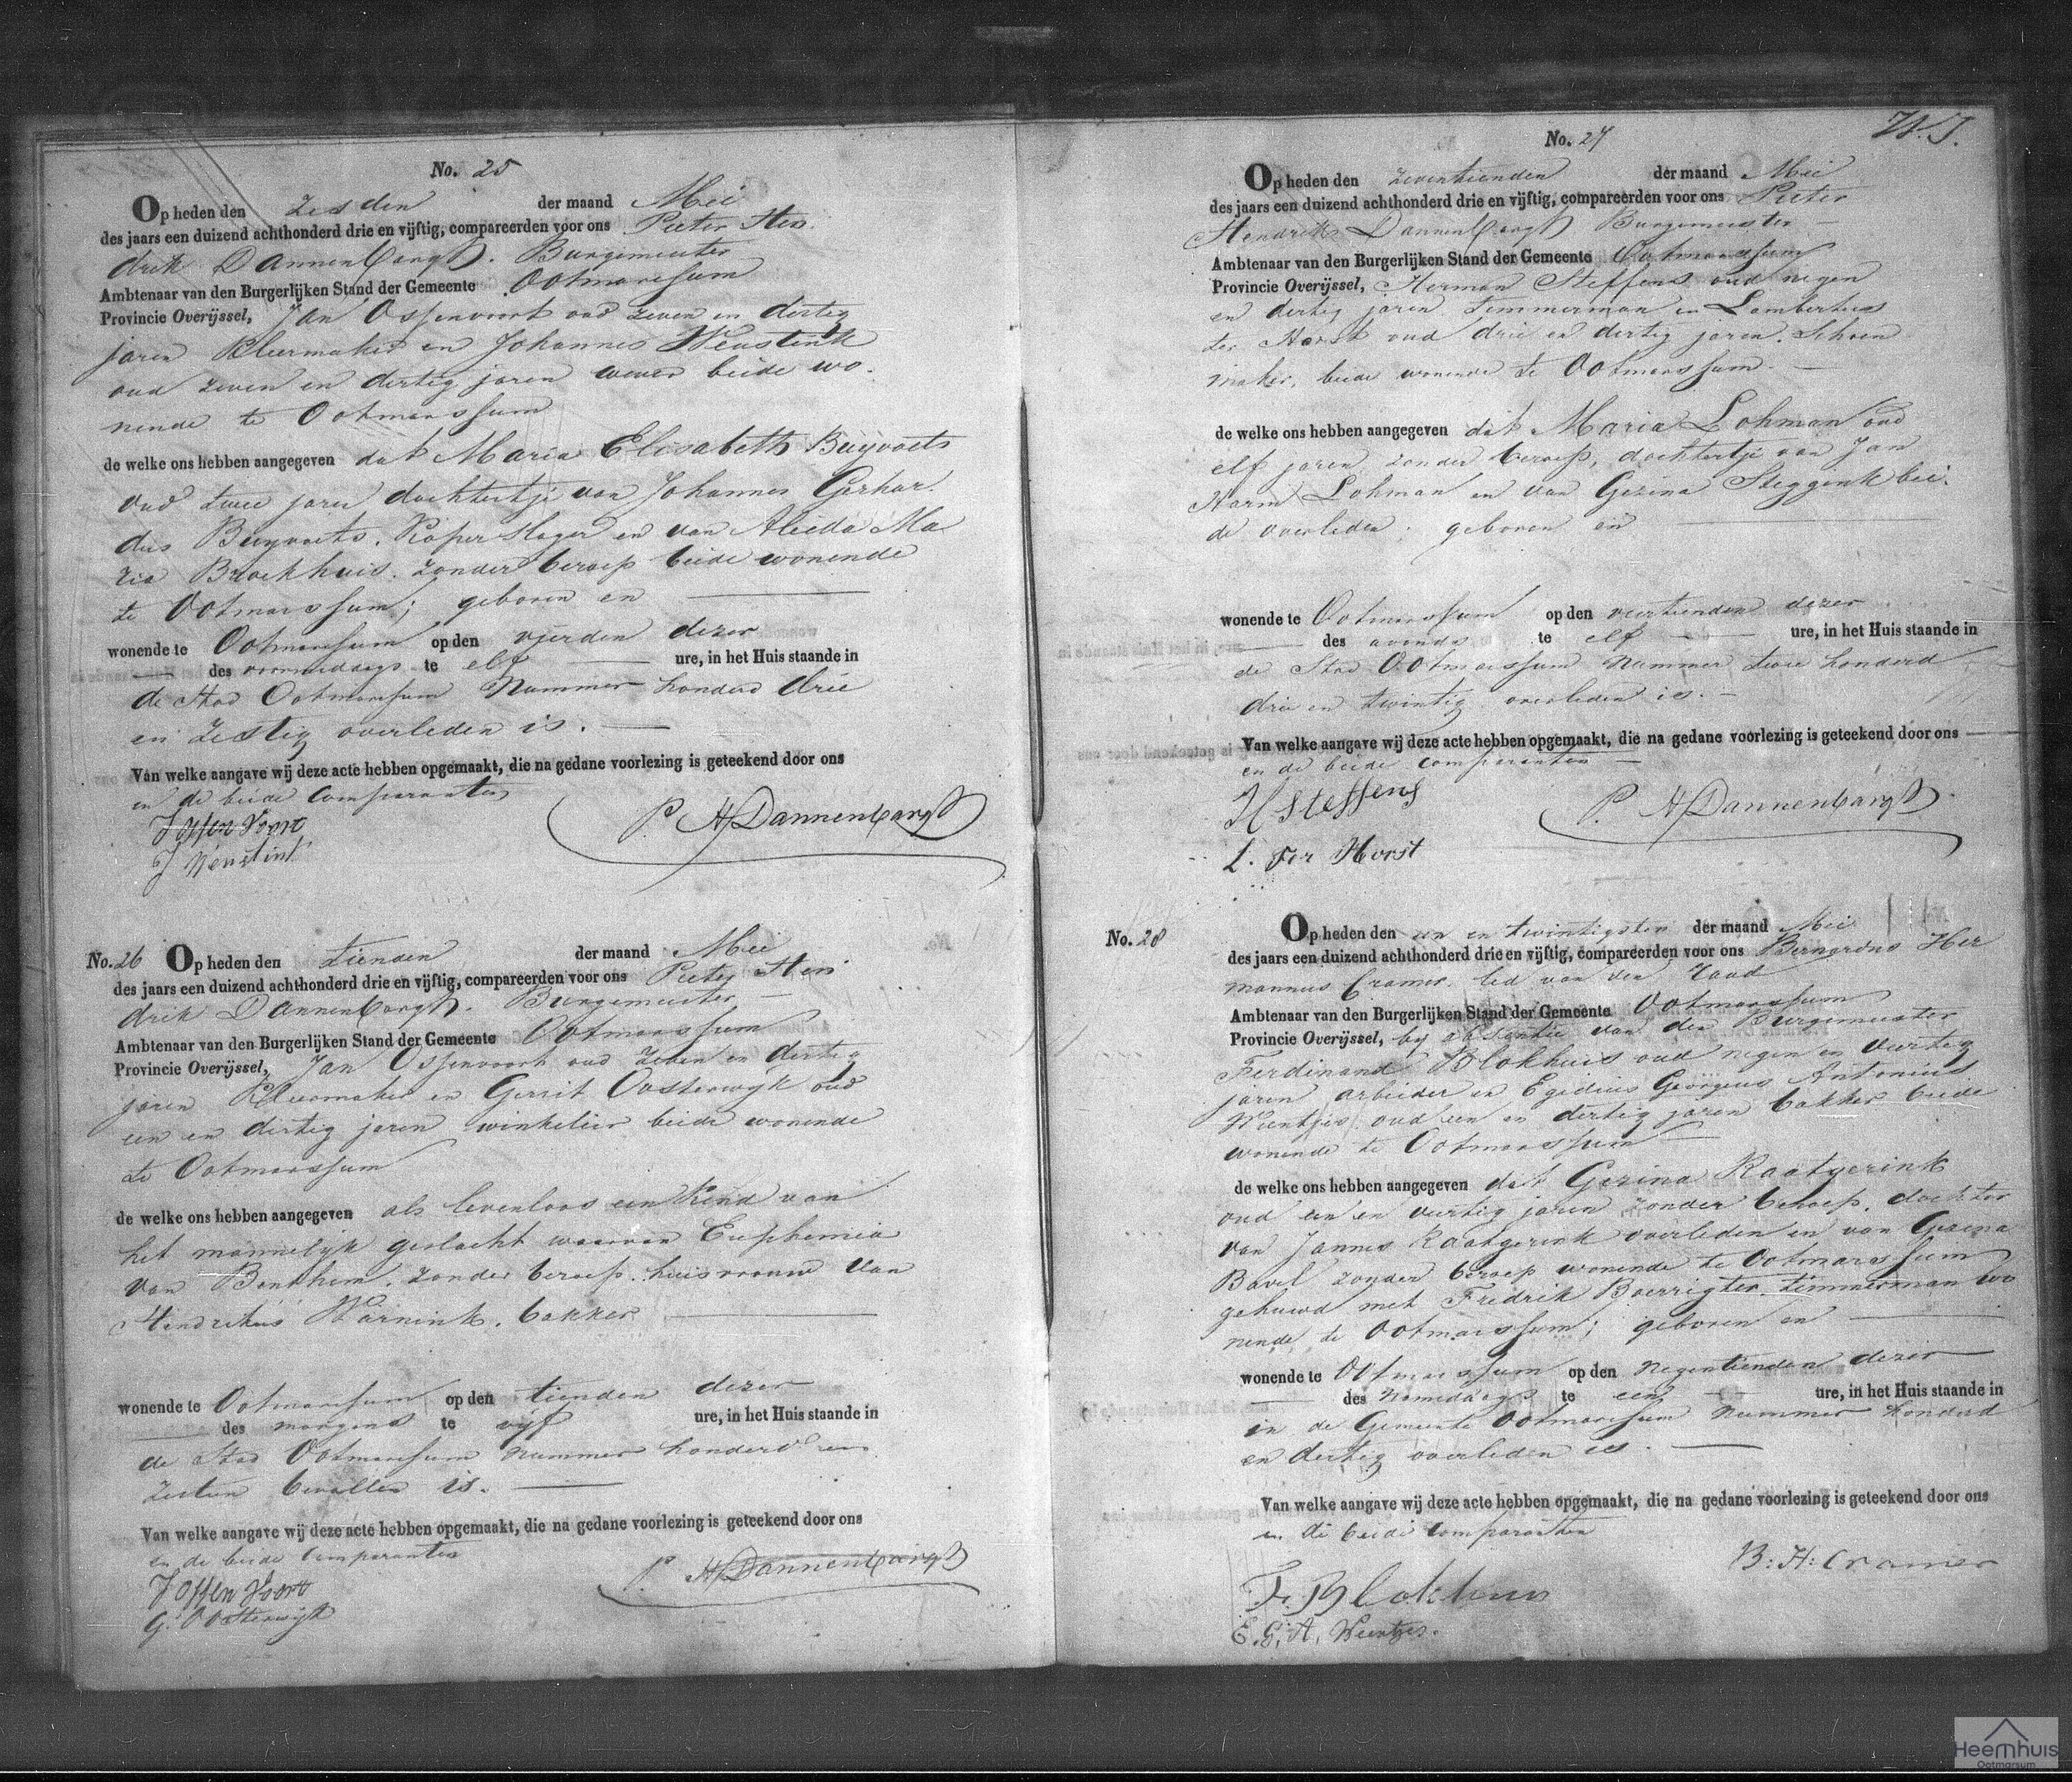 No. 25
Op heden den zesden der maand Mei
des jaars een duizend achthonderd drie en vijftig, compareerden voor ons Pieter Hen
drik Dannenbargh. Burgemeester
Ambtenaar van den Burgerlijken Stand der Gemeente Ootmarssum
Provincie Overijssel, Jan Ossenvoort oud zeven en dertig
jaren Kleermaker en Johannes Weustink
oud zeven en dertig jaren wever beide wo-
nende te Ootmarssum
de welke ons hebben aangegeven dat Maria Elisabeth Buyvoets
oud twee jaren dochtertje van Johannes Gerhar-
dus Buyvoets. Koperslager en van Aleida Ma
ria Broekhuis. zonder beroep beide wonende
te Ootmarssum; geboren en
wonende te Ootmarssum op den vierden dezer
des voormiddags te elf ure, in het Huis staande in
de Stad Ootmarssum Nummer honderd drie
en zestig overleden is.
Van welke aangave wij deze acte hebben opgemaakt, die na gedane voorlezing is geteekend door ons
en de beide Comparanten
J Ossen Voort P. H Dannenbargh
J Weustink
No. 26 Op heden den tienden der maand Mei
des jaars een duizend achthonderd drie en vijftig, compareerden voor ons Pieter Hen
drik Dannenbargh. Burgemeester
Ambtenaar van den Burgerlijken Stand der Gemeente Ootmarssum
Provincie Overijssel, Jan Ossenvoort oud zeven en dertig
jaren Kleermaker en Gerrit Oosterwijk oud
een en dertig jaren winkelier beide wonende
te Ootmarssum
de welke ons hebben aangegeven als levenloos een Kind van
het mannelijk geslacht waarvan Euphemia
van Benthem. zonder beroep. huisvrouw van
Hendrikus Warnink. bakker
wonende te Ootmarssum op den tienden dezer
des morgens te vijf ure, in het Huis staande in
de Stad Ootmarssum nummer honderd en
zestien bevallen is.
Van welke aangave wij deze acte hebben opgemaakt, die na gedane voorlezing is geteekend door ons
en de beide Comparanten
J Ossen Voort P. H Dannenbargh
G. Oosterwijk
W.J.
No. 27
Op heden den zeventienden der maand Mei
des jaars een duizend achthonderd drie en vijftig, compareerden voor ons Pieter
Hendrik Dannenbargh Burgemeester
Ambtenaar van den Burgerlijken Stand der Gemeente Ootmarssum
Provincie Overijssel, Herman Steffens oud negen
en dertig jaren Timmerman en Lambertus
ter Horst oud drie en dertig jaren. Schoen
maker, beide wonende te Ootmarssum.
de welke ons hebben aangegeven dat Maria Lohman oud
elf jaren zonder beroep, dochtertje van Jan
Harm Lohman en van Gezina Steggink bei-
de overleden; geboren en
wonende te Ootmarssum op den veertienden dezer
des avonds te elf ure, in het Huis staande in
de Stad Ootmarssum nummer twee honderd
drie en twintig overleden is.
Van welke aangave wij deze acte hebben opgemaakt, die na gedane voorlezing is geteekend door ons
en de beide comparanten
H Steffens P. H Dannenbargh
L. Ter Horst
No. 28 Op heden den een en twintigsten der maand Mei
des jaars een duizend achthonderd drie en vijftig, compareerden voor ons Bernardus Her
mannus Cramer. lid van den Raad
Ambtenaar van den Burgerlijken Stand der Gemeente Ootmarssum
Provincie Overijssel, by absentie van den Burgemeester
Ferdinand Blokhuis oud negen en veertig
jaren arbeider en Egidius Georgeus Antonius
Weentjes oud een en dertig jaren bakker beide
wonende te Ootmarssum
de welke ons hebben aangegeven dat Gezina Raatgerink
oud een en veertig jaren zonder beroep. dochter
van Jannes Raatgerink overleden en van Gezina
Bavel zonder beroep wonende te Ootmarssum
gehuwd met Fredrik Boerrigter timmerman wo
nende te Ootmarssum; geboren en
wonende te Ootmarssum op den negentienden dezer
des namiddags te een ure, in het Huis staande in
in de Gemeente Ootmarssum nummer honderd
en dertig overleden is.
Van welke aangave wij deze acte hebben opgemaakt, die na gedane voorlezing is geteekend door ons
en de beide Comparanten
B: H: Cramer
F. Blokhuis
E. G. A. Weentjes.
Heemhuis
Ootmarsum